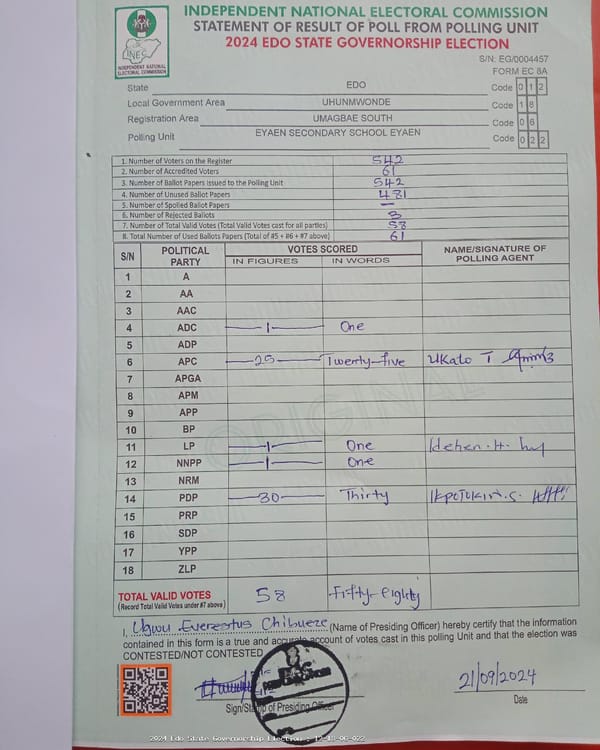 INDEPENDENT NATIONAL ELECTORAL COMMISSION
STATEMENT OF RESULT OF POLL FROM POLLING UNIT
2024 EDO STATE GOVERNORSHIP ELECTION
INEC
INDEPENDENT NATIONAL
ELECTORAL COMMISSION
S/N: EG/0004457
FORM EC 8A
State EDO Code 0 1 2
Local Government Area UHUNMWONDE Code 1 8
Registration Area UMAGBAE SOUTH Code 0 6
Polling Unit EYAEN SECONDARY SCHOOL EYAEN Code 0 2 2
1. Number of Voters on the Register 542
2. Number of Accredited Voters 61
3. Number of Ballot Papers Issued to the Polling Unit 542
4. Number of Unused Ballot Papers 481
5. Number of Spoiled Ballot Papers —
6. Number of Rejected Ballots 3
7. Number of Total Valid Votes (Total Valid Votes cast for all parties) 58
8. Total Number of Used Ballots Papers (Total of #5 + #6 + #7 above) 61
S/N POLITICAL PARTY VOTES SCORED NAME/SIGNATURE OF POLLING AGENT
IN FIGURES IN WORDS
1 A
2 AA
3 AAC
4 ADC 1 One
5 ADP
6 APC 25 Twenty-five Ukato T
7 APGA
8 APM
9 APP
10 BP
11 LP 1 One Idehen. H.
12 NNPP 1 One
13 NRM
14 PDP 30 Thirty
15 PRP
16 SDP
17 YPP
18 ZLP
ORIGINAL
TOTAL VALID VOTES 58 Fifty-eighty
(Record Total Valid Votes under #7 above)
I, Ugwu Everestus Chibueze (Name of Presiding Officer) hereby certify that the information
contained in this form is a true and accurate account of votes cast in this polling Unit and that the election was
CONTESTED/NOT CONTESTED
21/09/2024
Sign/Stamp of Presiding Officer Date
2024 Edo State Governorship Election : 12-18-06-022